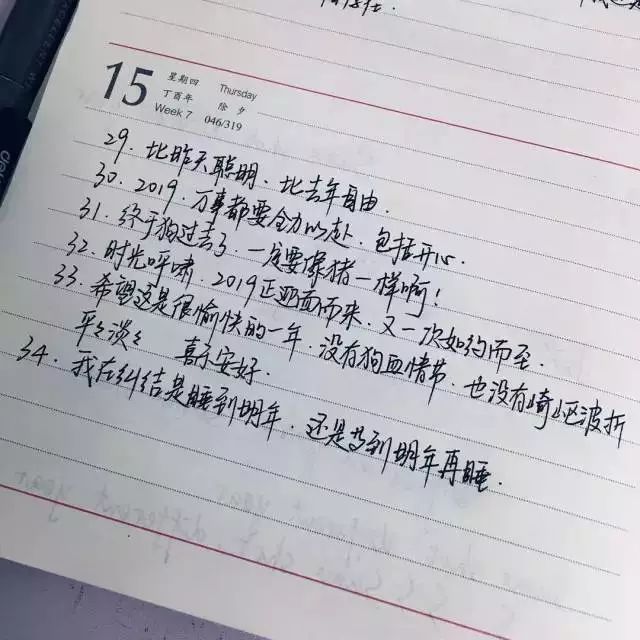 15
星期四 Thursday
丁酉年 除夕
Week 7 046/319
29. 比昨天聪明、比去年自由.
30. 2019. 万事都要全力以赴. 包括开心.
31. 终于狗过去了. 一定要像猪一样啊!
32. 时光呼啸. 2019正迎面而来. 又一次如约而至.
33. 希望这是很愉快的一年. 没有狗血情节. 也没有崎岖波折
平々淡々 喜乐安好.
34. 我在纠结是睡到明年. 还是等到明年再睡.
deli